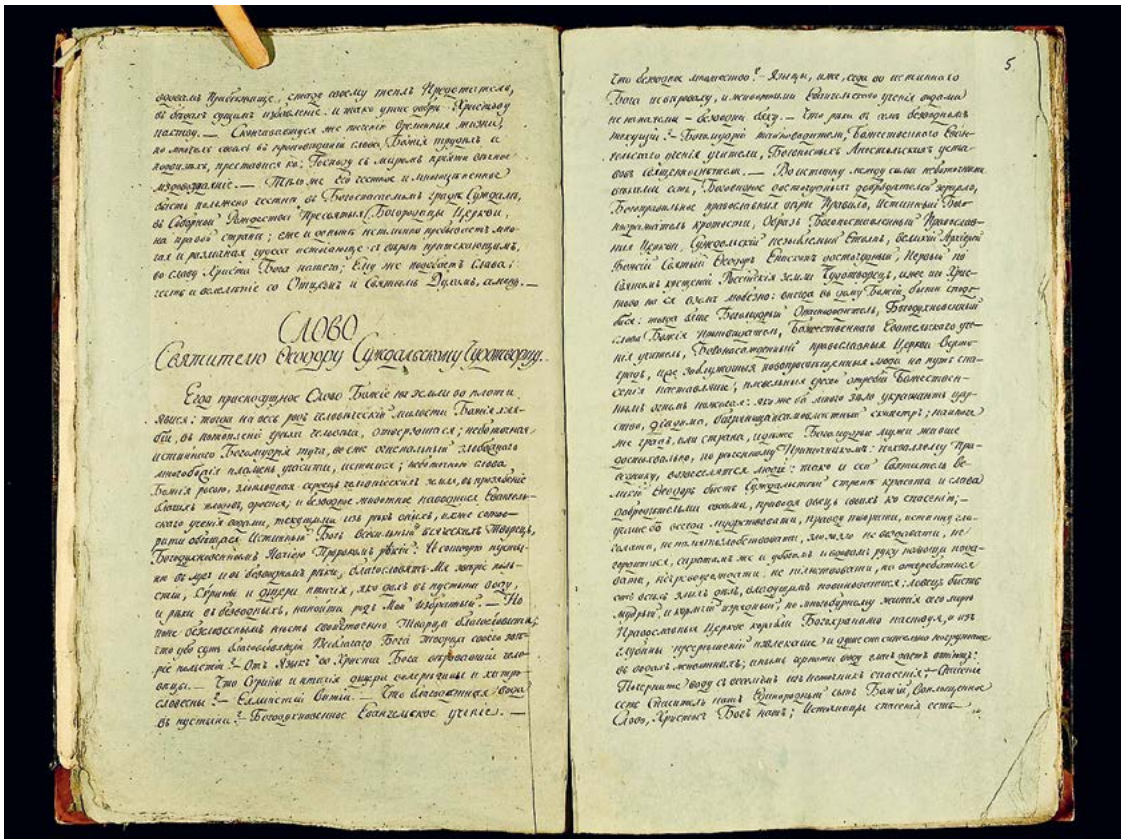 вдовамъ прибежище, стаду своему теплъ Предстатель,
въ бѣдахъ сущимъ избавленіе: и тако упасе добрѣ Христову
паству. — Скончавающуся же теченію временныя жизни,
по многихъ своихъ въ проповѣданіи слова Божія трудѣхъ и
подвизѣхъ, преставися ко Господу съ миромъ пріяти вѣчное
мздовоздаяніе. — Тѣло же Его честное и многоцѣнное
бысть положено честно въ Богоспасаемомъ градѣ Суждалѣ,
въ Соборной Рождества Пресвятыя Богородицы Церкви,
на правой странѣ; еже и донынѣ нетлѣнно пребываетъ мно-
гая и различная чудеса истачающе съ вѣрою притекающимъ,
во славу Христа Бога нашего; Ему же подобаетъ слава;
честь и велелѣпіе со Отцемъ и Святымъ Духомъ, аминь. —
СЛОВО
Святителю Ѳеодору Суждальскому Чудотворцу.
Егда присносущное Слово Божіе на земли во плоти
явися: тогда на весь родъ человѣческій милости Божія хля-
би, въ потопленіе грѣха человѣча, отверзошася; неботочная
истиннаго Богомудрія туча, во еже огнепальный злобѣднаго
многобожія пламень угасити, излися; неботочною слова
Божія росою, злоплодная сердецъ человѣческихъ земля, въ прозябеніе
благихъ плодовъ, оросися; и безводное животное наводнися Евангель-
скаго ученія водами, текущими изъ рѣкъ онѣхъ, ихже сотво-
рити обѣщася Истинный Богъ Всесильный всяческихъ Творецъ,
Богодухновеннымъ Исаіею Пророкомъ рекій: И сотворю пусты-
ню въ лугъ и въ безводномъ рѣки, благословятъ Мя звѣріе поль-
стіи, Сирины и дщери птичія, яко далъ въ пустыни воду,
и рѣки въ безводныхъ, напоити родъ Мой избранный. — Но
что убо суть благословящіи Преблагаго Бога Творца своего звѣ-
ріе польстіи? — Отъ языкъ во Христа Бога вѣровавшіи чело-
вѣцы. — Что Сирини и птичія дщери
словесны? — Еллинстіи Витіи. — Что благоданная вода
въ пустыни? — Богодухновенное Евангельское ученіе. —
5
Что безводное множество? — Языцы, иже, егда во истиннаго
Бога не вѣроваху, и животными Евангельскаго ученія водами
не напаяеми — безводни бѣху. — Что рѣки въ семъ безводномъ
текущіи? — Богомудріи тайноводители, Божественнаго Еван-
гельскаго ученія учители, Богоносныхъ Апостольскихъ уста-
вовъ — Воистинну между сими
есть, Боговидное достохвальныхъ добродѣтелей зерцало,
Богоправильное православныя вѣры Правило, истинный
кротости, Образъ Богопоставленный Православ-
ныя Церкви, Суждальскій незыблемый Столпъ, великій Архіерей
Божій Святый Ѳеодоръ Епископъ достохвальный, Первый по
Святомъ крещеніи Россійскія земли Чудотворецъ, иже иго Хрис-
тово на ся вземъ любезно: внегда въ дому Божій быти
бися: тогда Богомудрый Богодухновенный
слова Божія Божественнаго Евангельскаго уче-
нія учитель, Богонасажденный православныя Церкви Верто-
градъ, новопросвѣщенныя люди на путь спа-
сенія наставляше, плевельныя грѣхи Божествен-
нымъ огнемъ пожигая: яко же бо много зѣло украшаетъ цар-
ство, діадима, багряница и самовластный скипетръ; наипаче
же градъ, или страна, идѣже Богомудріи мужи живше
достохвально, по реченному Приточникомъ: похваляему пра-
веднику, возвеселятся людіе: тако и сей Святитель Ве-
ликій Ѳеодоръ бысть Суждальстѣй странѣ красота и слава
добродѣтельми своими, приводя овецъ своихъ ко спасенію; —
учаше бо всегда мудрствовати, правду творити, истинну гла-
голати, не памятозлобствовати, зла за зло не воздавати, не
гордитися, сиротамъ же и убогимъ и вдовамъ руку помощи пода-
вати, не пьянствовати, но отгребатися
отъ всѣхъ злыхъ дѣлъ, владущимъ повиноватися: ловецъ бысть
мудрый и кормчій изрядный, по многобурному житія сего морю
Православныя Церкве корабль Богохранимо наставляя, и изъ
глубины извлекаше
въ водахъ животныхъ; инымъ черпати воду
Почерпите воду съ веселіемъ изъ источникъ спасенія: Спасеніе
есть Спаситель нашъ Единородный Сынъ Божій, Воплощенное
Слово, Христосъ Богъ нашъ; Источницы спасенія есть —